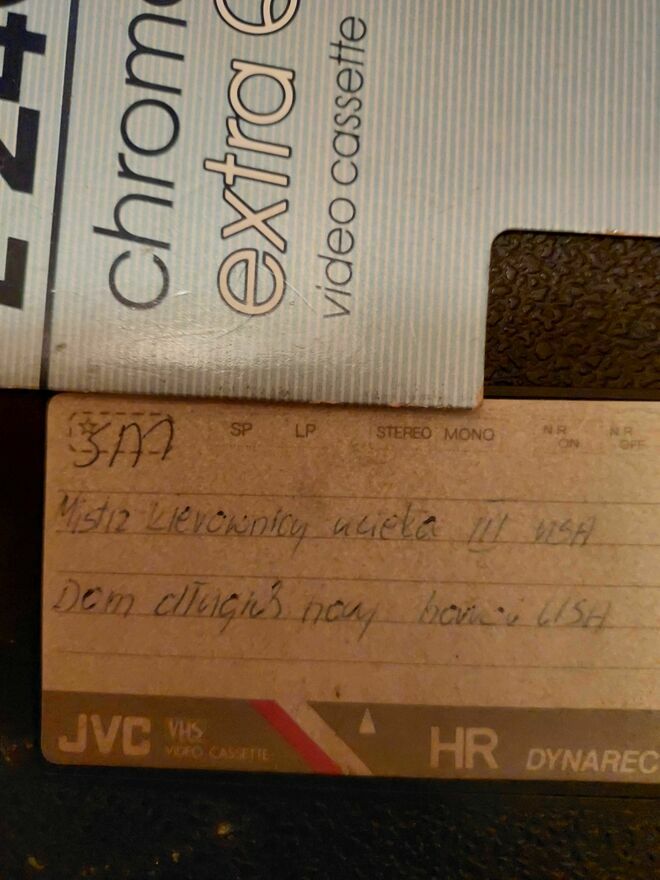 E 24
chrom
extra
video cassette
SP LP STEREO MONO N.R. ON N.R. OFF
Mistrz kierownicy ucieka III USA
Dom długiej nocy USA
JVC VHS VIDEO CASSETTE HR DYNAREC